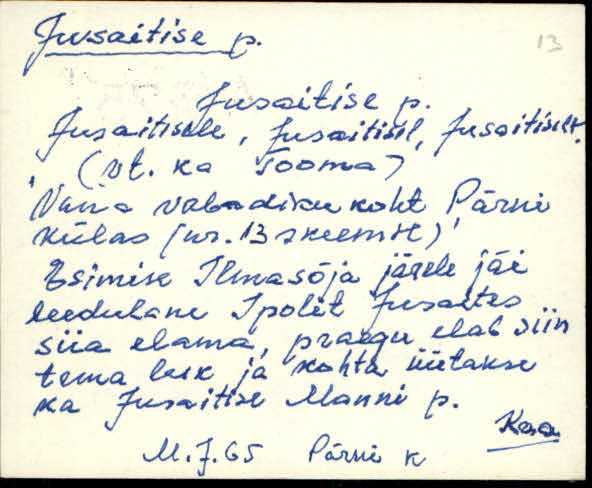 Jusaitise p.
13
Jusaitise p.
Jusaitisele, Jusaitisel, Jusaitiselt.
(vt. ka Tooma)
Vana vabadiku koht Pärni
külas (nr. 13 skeemil)
Esimise Ilmasõja järele jäi
leedulane Ipolit Jusaites
siia elama, praegu elab siin
tema lesk ja kohta üütakse
ka Jusaitise Manni p.
Kaa
M.J.65 Pärni k